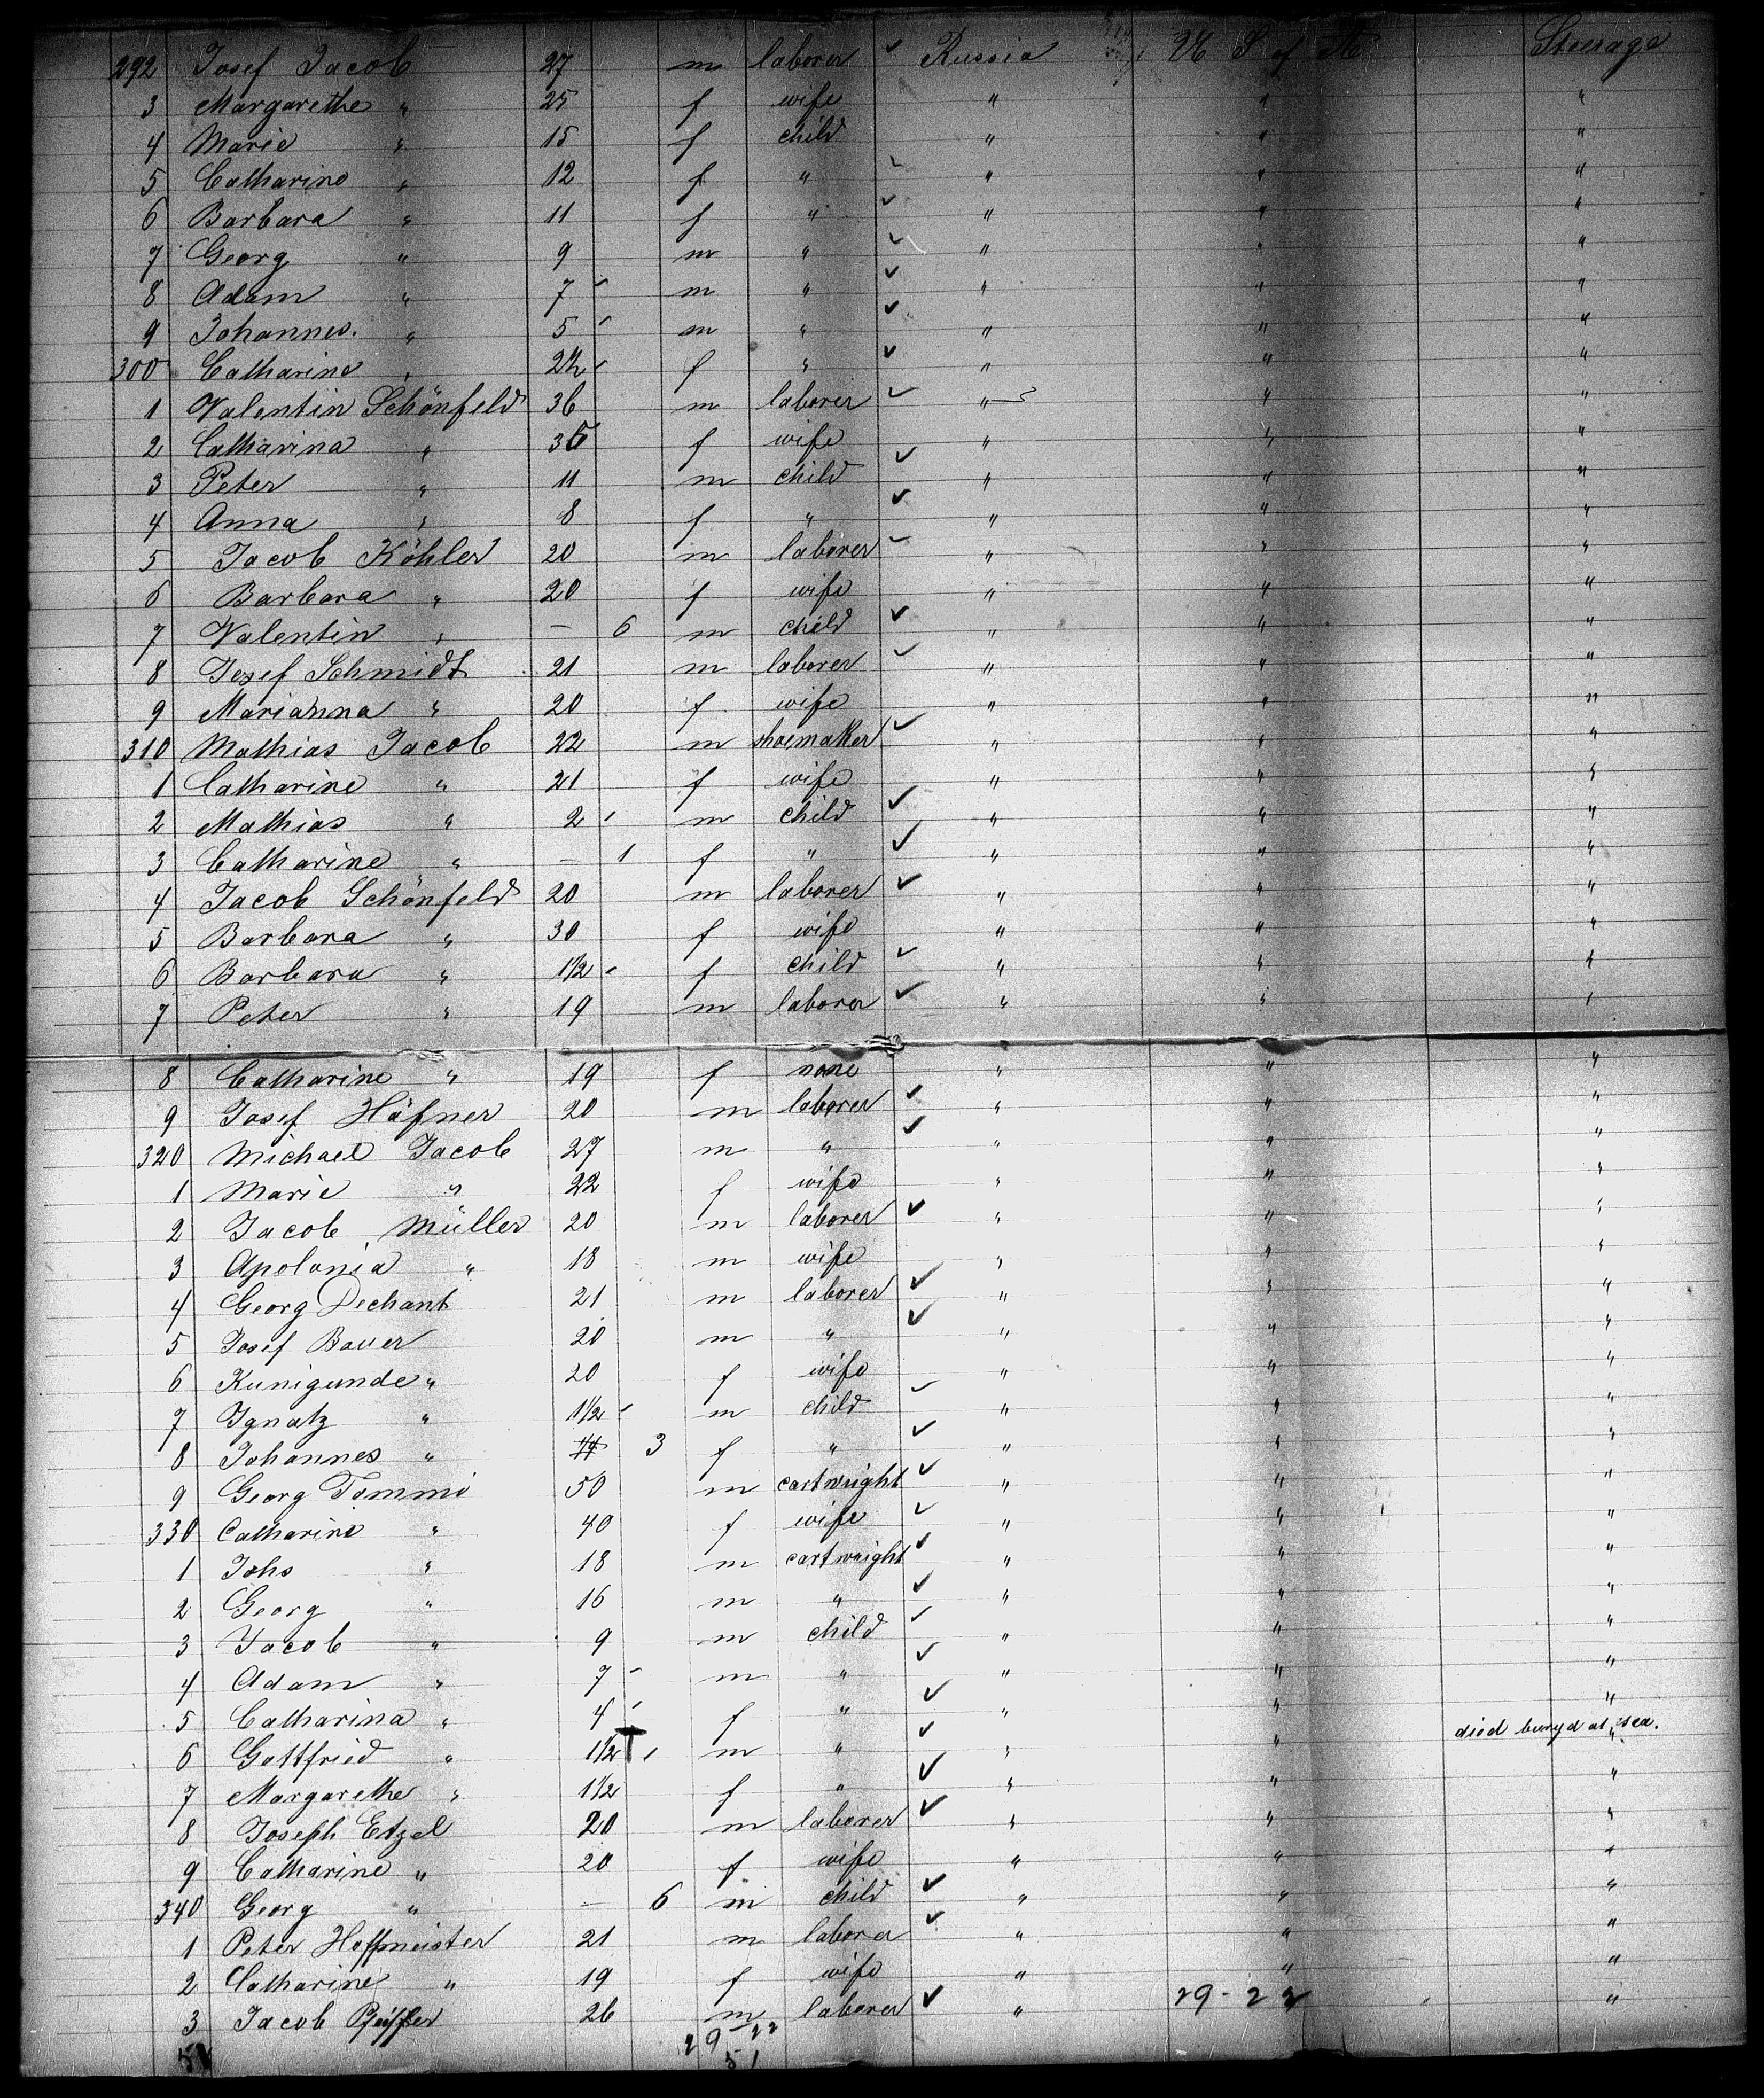 292 Josef Jacob 27 m laborer ✓ Russia U S of A Steerage
3 Margarethe " 25 f wife " " "
4 Marie " 15 f child " " "
5 Catharine " 12 f " ✓ " " "
6 Barbara " 11 f " ✓ " " "
7 Georg " 9 m " ✓ " " "
8 Adam " 7 m " ✓ " " "
9 Johannes. " 5 m " ✓ " " "
300 Catharine " f " ✓ " " "
1 Valentin Schönfeld 36 m laborer ✓ " " "
2 Catharina " 35 f wife " " "
3 Peter " 11 m child ✓ " " "
4 Anna " 8 f " ✓ " " "
5 Jacob Köhler 20 m laborer ✓ " " "
6 Barbara " 20 f wife " " "
7 Valentin " — 6 m child ✓ " " "
8 Josef Schmidt 21 m laborer ✓ " " "
9 Marianna " 20 f wife " " "
310 Mathias Jacob 22 m shoemaker ✓ " " "
1 Catharine " 21 f wife " " "
2 Mathias " 2 m child ✓ " " "
3 Catharine " — 1 f " ✓ " " "
4 Jacob Schönfeld 20 m laborer ✓ " " "
5 Barbara " 30 f wife " " "
6 Barbara " 1½ f child ✓ " " "
7 Peter " 19 m laborer ✓ " " "
8 Catharine " 19 f none " " "
9 Josef Häfner 20 m laborer ✓ " " "
320 Michael Jacob 27 m " ✓ " " "
1 Marie " 22 f wife " " "
2 Jacob Müller 20 m laborer ✓ " " "
3 Apolonia " 18 m wife " " "
4 Georg Dechant 21 m laborer ✓ " " "
5 Josef Bauer 20 m " ✓ " " "
6 Kunigunde " 20 f wife " " "
7 Ignatz " 1½ m child ✓ " " "
8 Johannes " 3 f " ✓ " " "
9 Georg Tommi 50 m cartwright ✓ " " "
330 Catharine " 40 f wife ✓ " " "
1 Johs " 18 m cartwright ✓ " " "
2 Georg " 16 m " ✓ " " "
3 Jacob " 9 m child ✓ " " "
4 Adam " 7 m " ✓ " " "
5 Catharina " 4 f " ✓ " " "
6 Gottfried " 1½ m " ✓ " " died buryd at sea. "
7 Margarethe " 1½ f " ✓ " " "
8 Joseph Etzel 20 m laborer ✓ " " "
9 Catharine " 20 f wife " " "
340 Georg " — 6 m child ✓ " " "
1 Peter Hoffmeister 21 m laborer ✓ " " "
2 Catharine " 19 f wife " " "
3 Jacob Pfeiffer 26 m laborer ✓ " 29-22 "
29-22
51 51